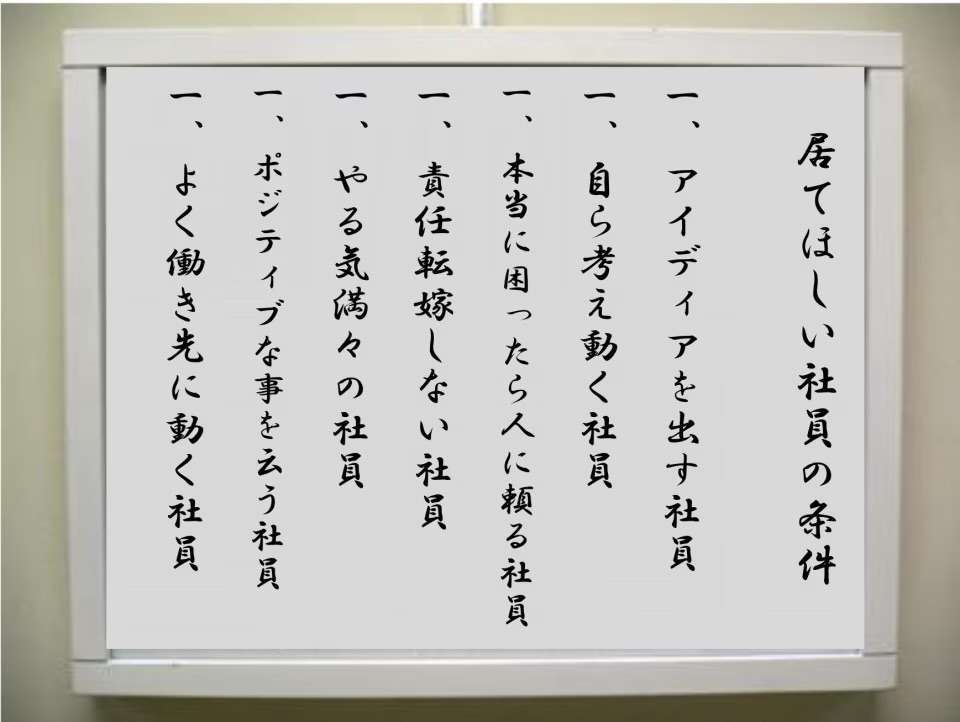 居てほしい社員の条件
一、アイディアを出す社員
一、自ら考え動く社員
一、本当に困ったら人に頼る社員
一、責任転嫁しない社員
一、やる気満々の社員
一、ポジティブな事を云う社員
一、よく働き先に動く社員